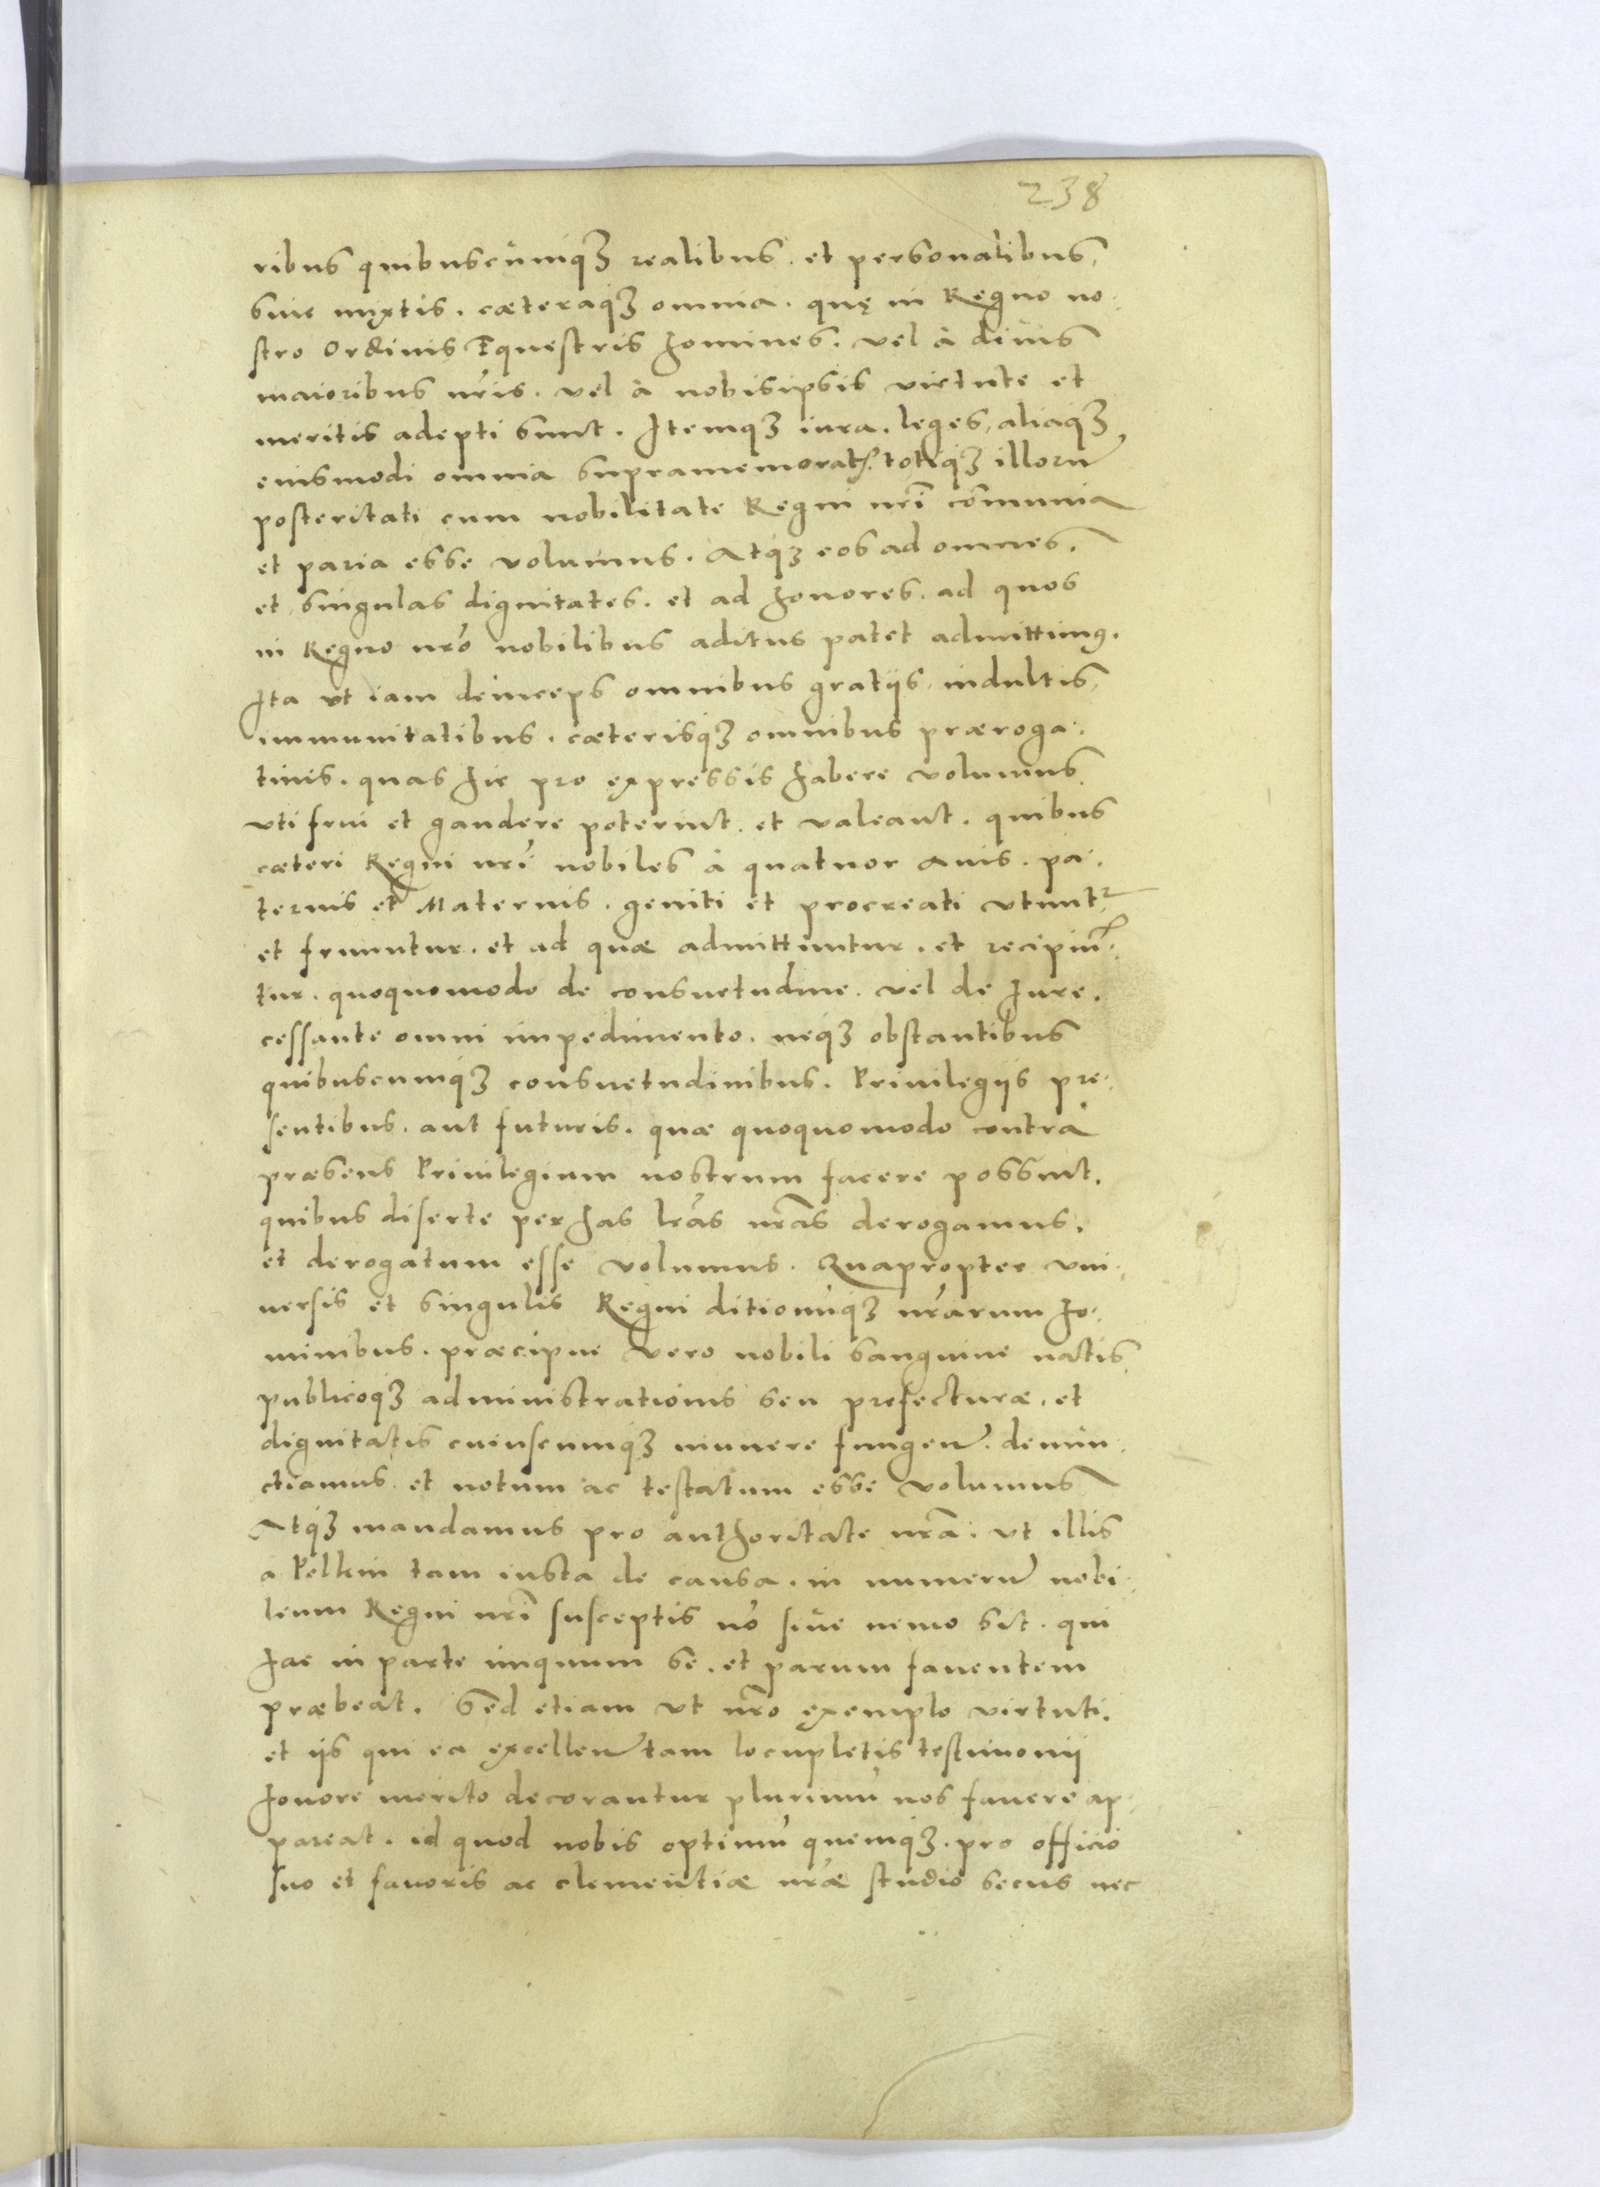 238
ribus quibuscunq3 realibus. et personalibus,
siue mixtis. cæteraq3 omnia. quę in Regno no.
stro Ordinis Equestris homines. vel à diuis
maioribus nr̃is. vel à nobisipsis virtute et
meritis adepti sunt. Itemq3 iura. leges, aliaq3
eiusmodi omnia supramemorat. totiq3 illorũ
posteritati cum nobilitate Regni nr̃i cõmunia
et paria esse volumus. Atq3 eos ad omnes,
et singulas dignitates. et ad honores. ad quos
in Regno nr̃o nobilibus aditus patet admittimꝰ.
Ita vt iam deinceps omnibus gratijs, indultis,
immunitatibus. cæterisq3 omnibus præroga.
tiuis. quas hic pro expressis habere volumus
vti frui et gaudere poterint. et valeant. quibus
cæteri Regni nr̃i nobiles à quatuor auis. pa.
ternis et Maternis. geniti et procreati vtuntr
et fruuntur. et ad quæ admittuntur. et recipiũ.
tur. quoquomodo de consuetudine. vel de Iure.
cessante omni impedimento. neq3 obstantibus
quibuscumq3 consuetudinibus. Priuilegijs pre.
sentibus. aut futuris. quæ quoquomodo contra
præsens Priuilegium nostrum facere possint.
quibus diserte per has lr̃as nr̃as derogamus.
et derogatum esse volumus. Quapropter vni.
uersis et singulis Regni ditionuq3 nr̃arum ho.
minibus. præcipue vero nobili sanguine natis
publicoq3 administrationis seu prefecturæ. et
dignitatis cuiuscumq3 munere fungeñ. denun.
ctiamus. et notum ac testatum esse volumus
Atq3 mandamus pro authoritate nr̃a. vt illis
a Pellem tam iusta de causa. in numerũ nobi.
lium Regni nr̃i susceptis nõ siue nemo sit. qui
hac in parte iniquum se. et parum fauentem
præbeat. Sed etiam vt nr̃o exemplo virtuti.
et ijs qui ea excelleñ tam locupletis testimonij
honore merito decorantur plurimũ nos fauere ap.
pareat. id quod nobis optimũ quemq3. pro officio
suo et fauoris ac clementiæ nr̃æ studio secus nec